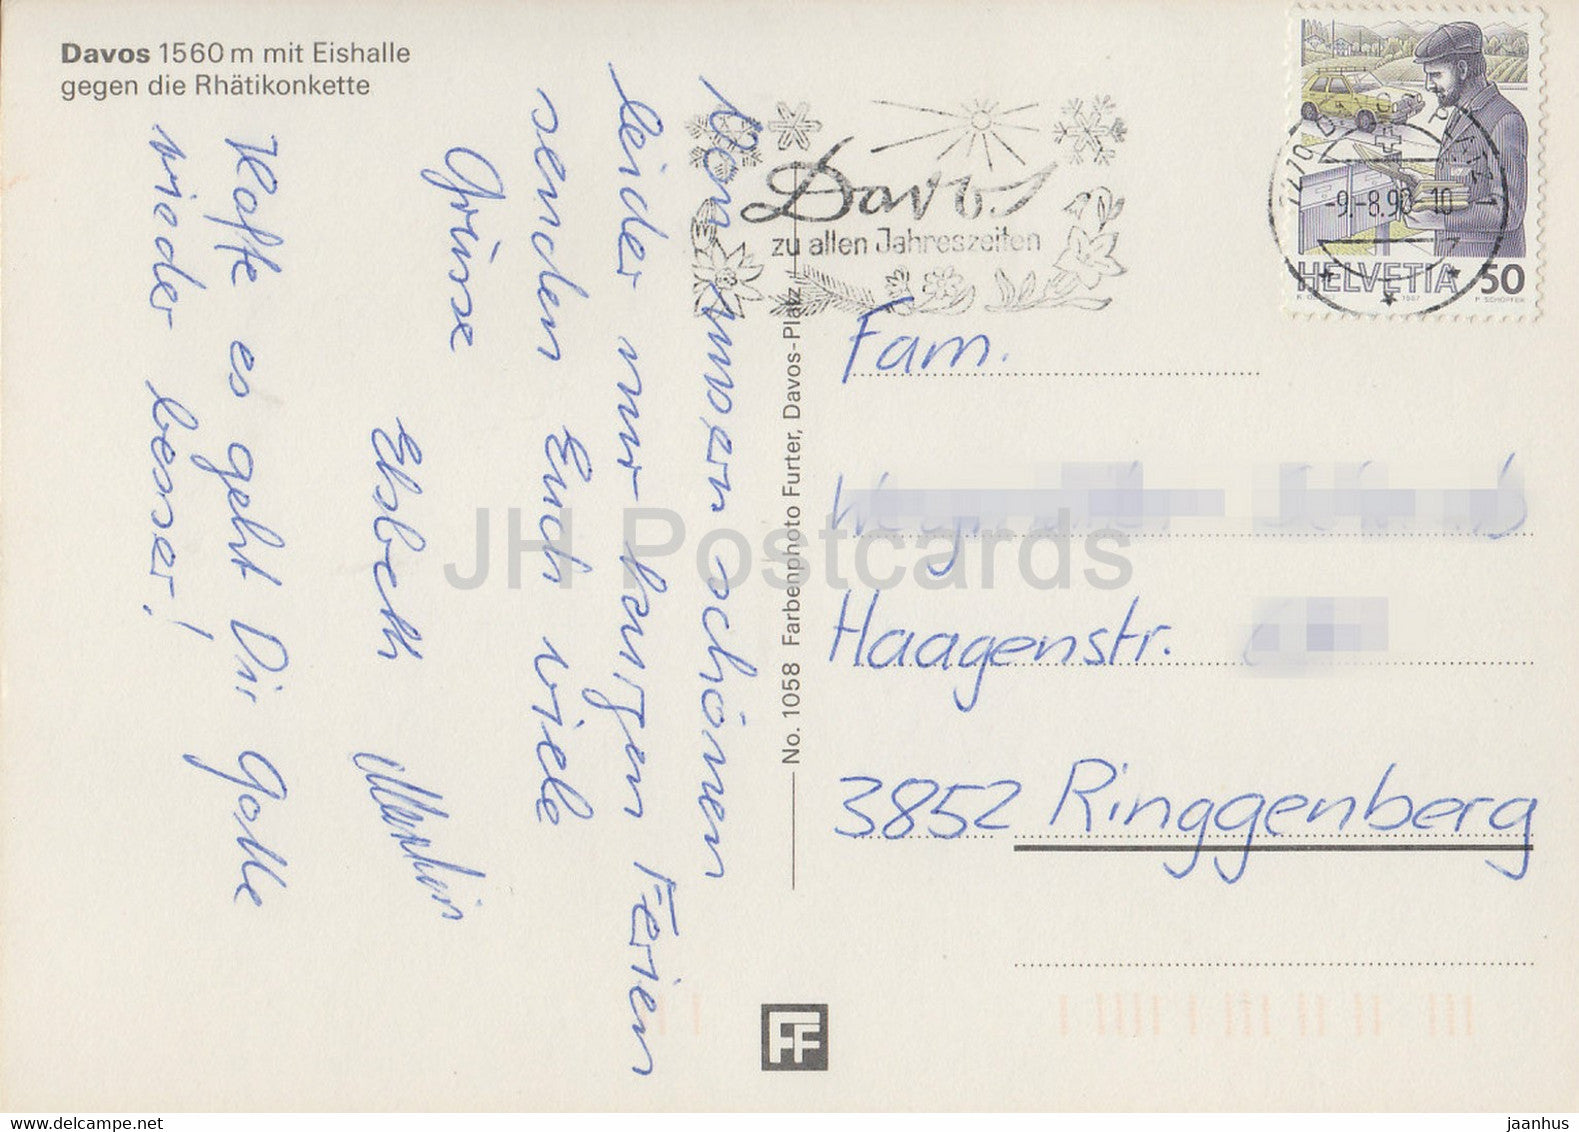 Davos 1560 m mit Eishalle
gegen die Rhätikonkette
Von unsern schönen
leider nur kurzen Ferien
senden Euch viele
Grüsse
Elsbeth
Hoffe es geht Dir
wieder besser!
Davos
zu allen Jahreszeiten
9.-8.90 10
HELVETIA 50
1987
No. 1058 Farbenphoto Furter, Davos-Platz
Fam.
Haagenstr.
3852 Ringgenberg
FF
JH Postcards
www.delcampe.net
jaanhus